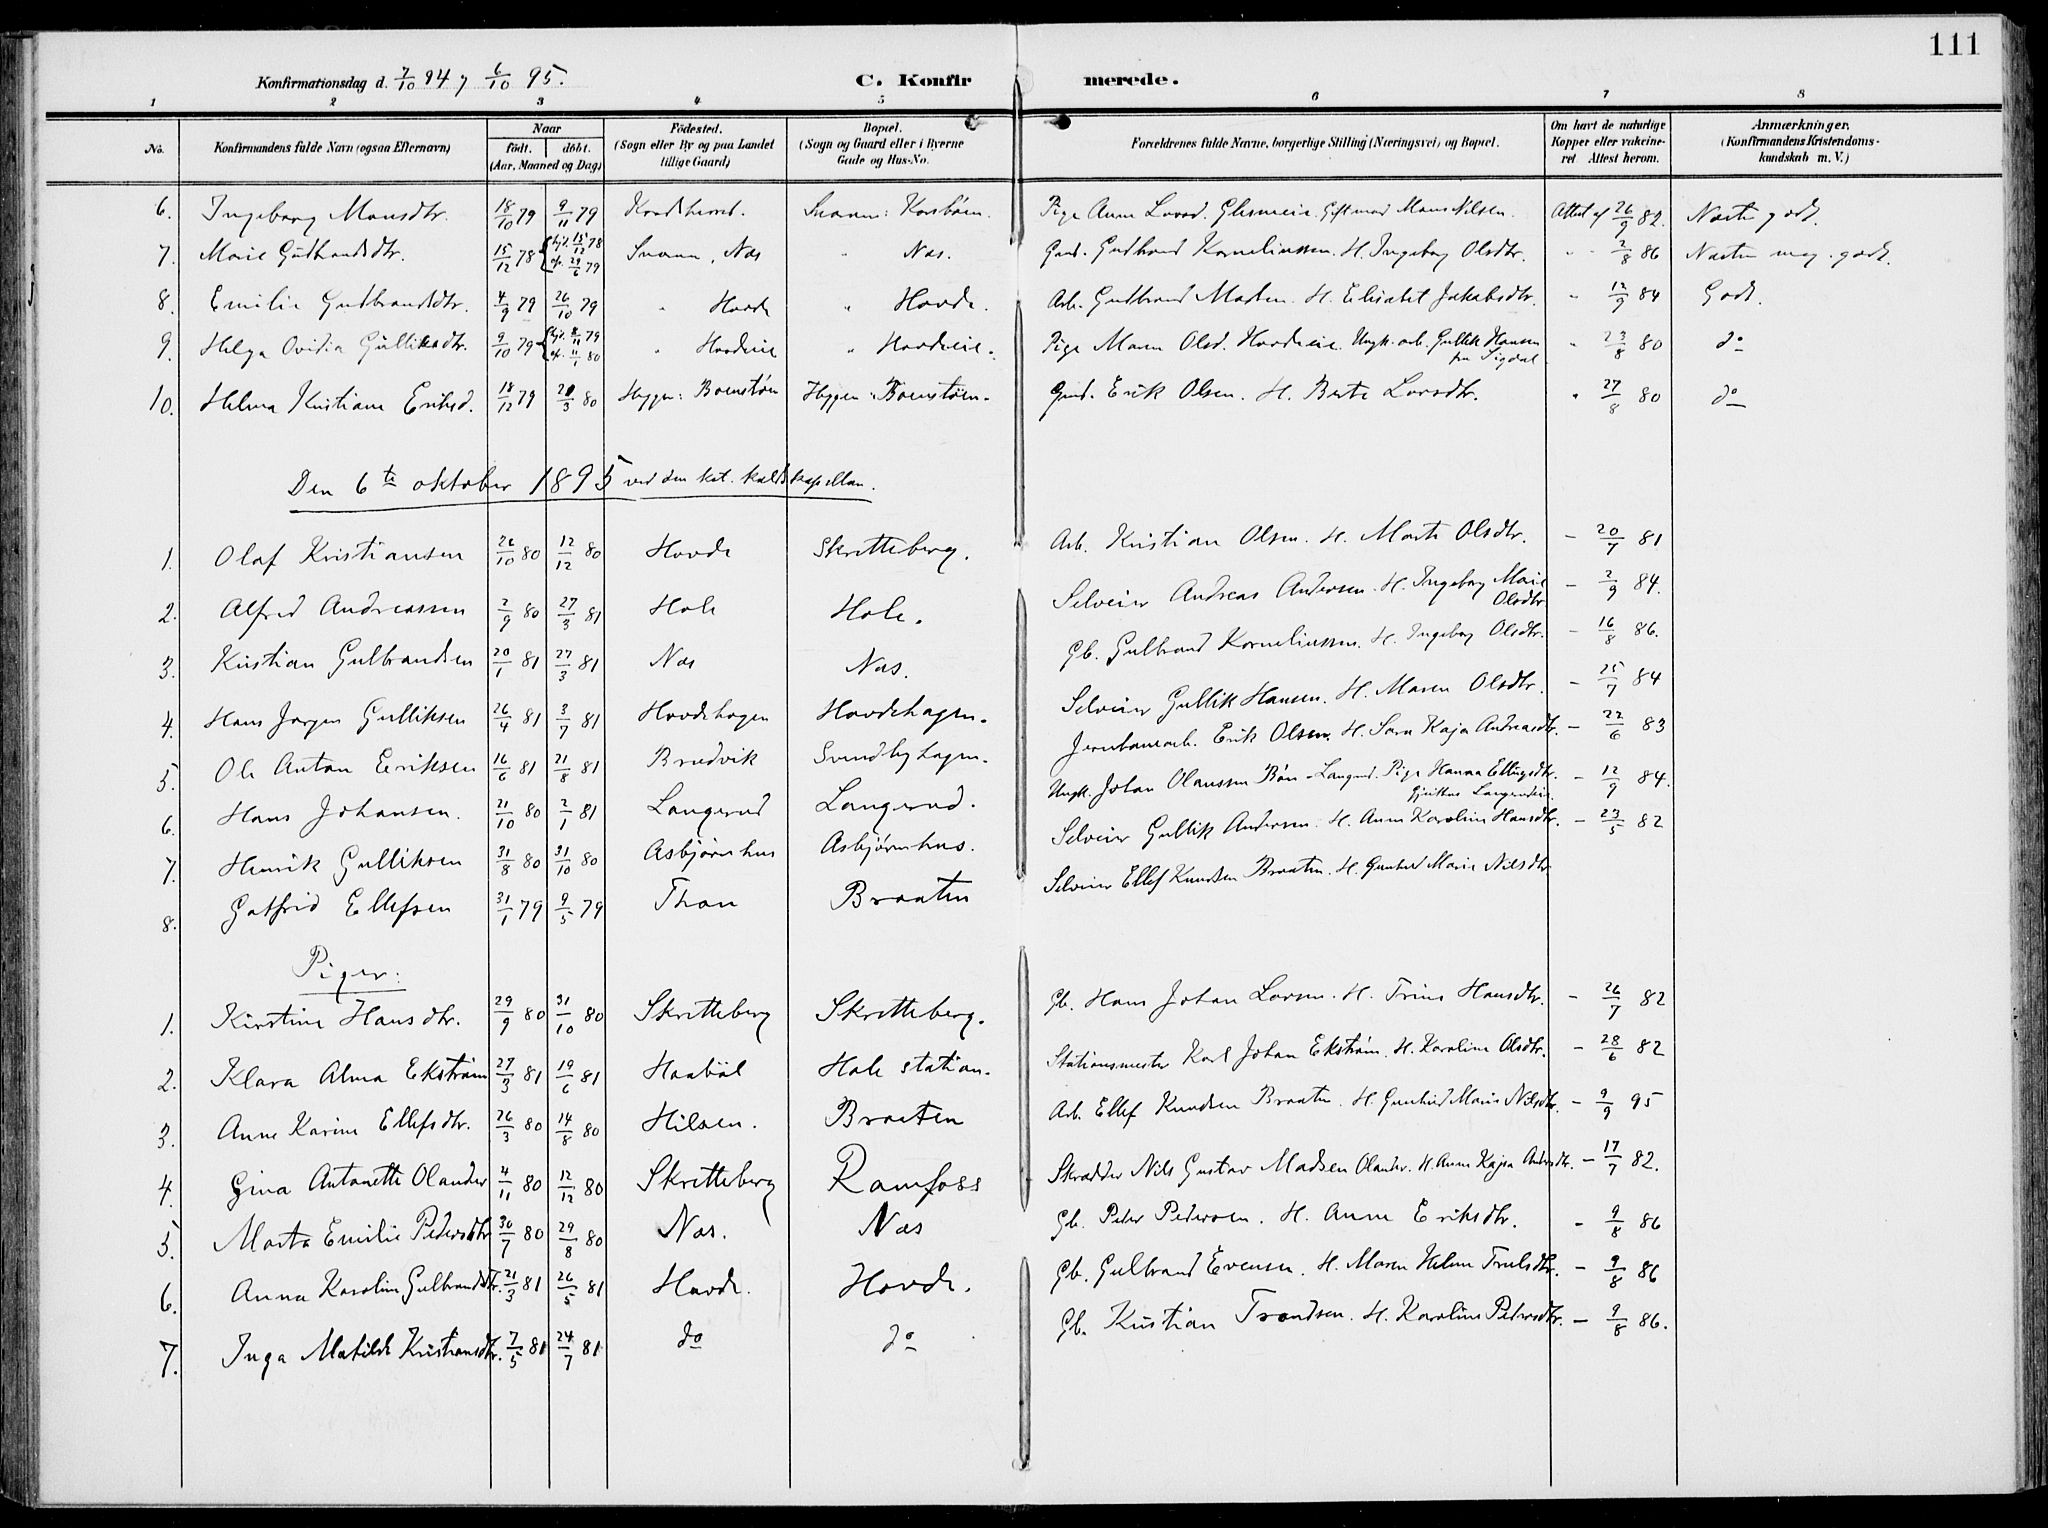 111
Konfirmationsdag d. 7/10 94, 6/10 95. C. Konfirmerede.
1 2 3 4 5 6 7 8
No. Konfirmandens fulde Navn (ogsaa Efternavn) Naar født. døbt. (Aar, Maaned og Dag) Fødested. (Sogn eller By og paa Landet tillige Gaard) Bopæl. (Sogn og Gaard eller i Byerne Gade og Hus-No. Forældrenes fulde Navne, borgerlige Stilling (Næringsvei) og Bopæl. Om havt de naturlige Kopper eller vakcineret Attest herom. Anmærkninger. (Konfirmandens Kristendomskundskab m. V.)
6. Ingeborg Monsdtr. 18/10 79 9/11 79 Kradsherred. Snarum: Pige Anne Gift med Mons Nilsen. Attest af 26/9 82. Næsten godt.
7. Marie Gudbrandsdtr. 15/12 78 hj. 15/12 78 Snarum, Næs " Næs. Gmd. Gudbrand Korneliussen. H. Ingeborg Olsdtr. " " 2/8 86 Næsten meg. godt.
 29/6 79
8. Emilie Gudbrandsdtr. 4/9 79 26/10 79 " Hovde " Hovde. Arb. Gudbrand H. Elisabet Jakobsdtr. " 12/9 84 Godt.
9. Helga Ovidia Gulliksdtr. 9/10 79 hj. 8/11 79 " Hovdeeie " Hovdeeie. Pige Maren Olsd. Hovdeeie. Ungk. arb. Gullik Hansen " 23/8 80 do
 11/1 80 fra Sigdal
10. Helma Kristiane Eriksd. 18/12 79 28/3 80 Hyggen: Hyggen: Gmd. Erik Olsen. H. Berte Larsdtr. " 27/8 80 do
Den 6te oktober 1895 ved den kst. kaldskapellan.
1. Olaf Kristiansen 26/10 80 12/12 80 Hovde Skretteberg. Arb. Kristian Olsen. H. Marte Olsdtr. - 20/7 81
2. Alfred Andreassen 2/9 80 27/3 81 Hole Hole. Selveier Andreas Andersen. H. Ingeborg Marie - 2/9 84.
Olsdtr.
3. Kristian Gulbrandsen 20/1 81 27/3 81 Næs Næs. Gb. Gulbrand Korneliussen. H. Ingeborg Olsdtr. - 16/8 86.
4. Hans Jørgen Gulliksen 26/4 81 3/7 81 Hovdehagen Hovdehagen. Selveier Gullik Hansen. H. Maren Olsdtr. - 25/7 84
5. Ole Anton Eriksen 16/6 81 21/8 81 Bredvik Sundbyhagen. Jernbanearb. Erik Olsen. H. Sara Kaja Andreasdtr. - 22/6 83
6. Hans Johansen. 21/10 80 2/1 81 Langerud Langerud. Ungk. Johan Olaussen Pige Hanna Ellingsdtr. - 12/9 84.
7. Henrik Gulliksen 31/8 80 31/10 80 Asbjørnhus Asbjørnhus. Selveier Gullik Andersen. H. Anne Karoline Hansdtr. - 23/5 82
8. Gotfrid Ellefsen 31/1 79 9/5 79 Thon Braaten Selveier Ellef Knudsen Braaten. H. Gunhild Marie Nilsdtr
Piger:
1. Kirstine Hansdtr. 29/9 80 31/10 80 Skretteberg Skretteberg. Gb. Hans Johan Larsen. H. Trine Hansdtr. - 26/7 82
2. Klara Alma Ekstrøm 27/3 81 19/6 81 Haabøl Hole station. Stationsmester Karl Johan Ekstrøm. H. Karoline Olsdtr. - 28/6 82
3. Anne Karine Ellefsdtr. 26/3 80 14/8 80 Hilsen. Braaten Arb. Ellef Knudsen Braaten. H. Gunhild Marie Nilsdtr. - 9/9 95
4. Gina Antonette Olander 4/11 80 12/12 80 Skretteberg Ramfoss Skrædder Nils Gustav Madsen Olander. H. Anne Kajsa - 17/7 82.
5. Marta Emilie Pedersdtr 30/7 80 29/8 80 Næs. Næs Gb. Peder Pedersen. H. Anne Eriksdtr. - 9/8 86
6. Anna Karoline Gulbrandsdtr. 21/3 81 26/5 81 Hovde. Hovde. Gb. Gulbrand Evensen. H. Maren Helene Trulsdtr. - 9/8 86
7. Inga Matilde Kristiansdtr. 7/5 81 24/7 81 do do Gb. Kristian Trondsen. H. Karoline Pedersdtr. - 9/8 86.